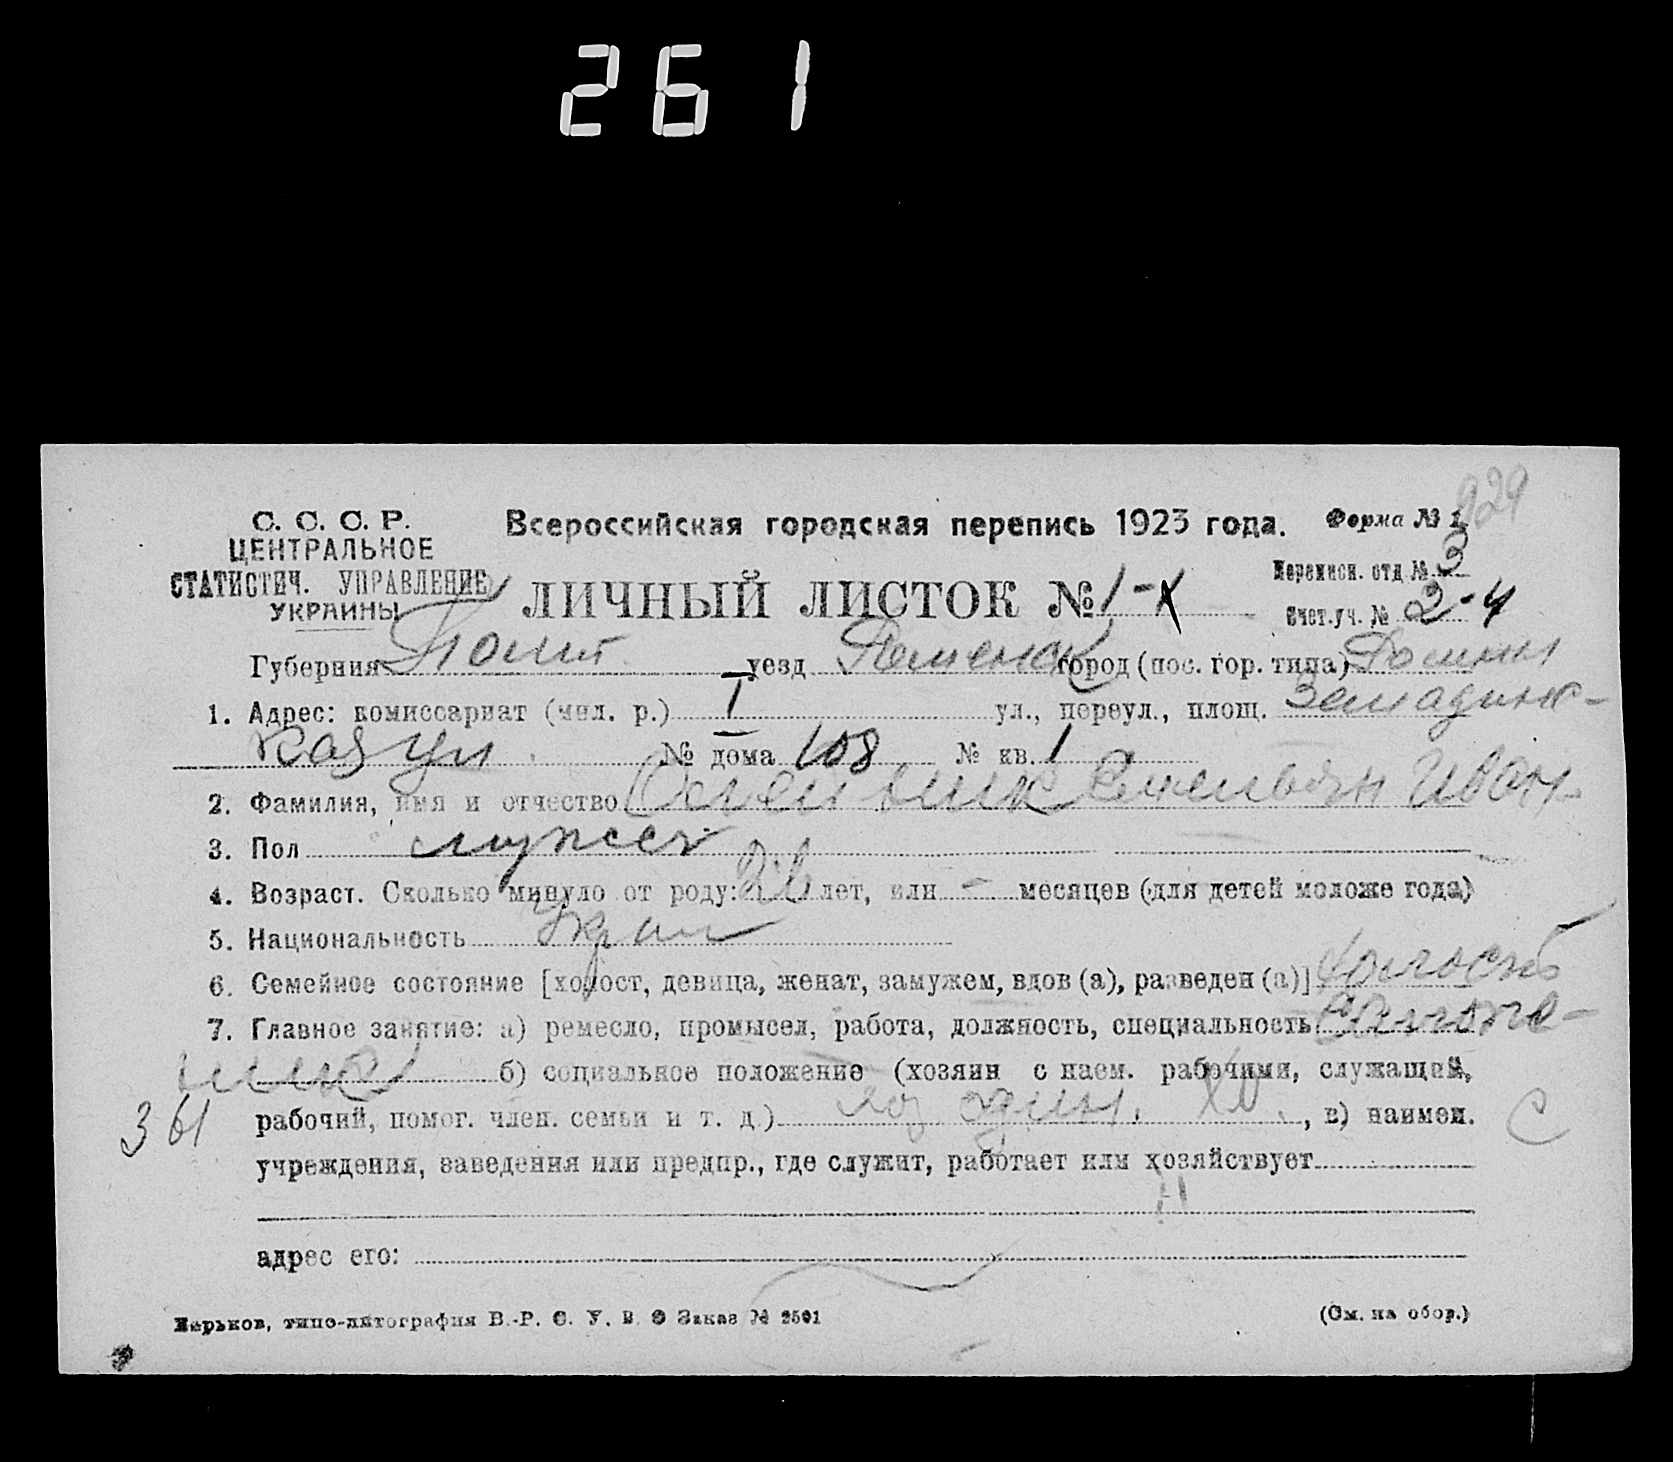 261
929
С. С. С. Р.
ЦЕНТРАЛЬНОЕ
СТАТИСТИЧ. УПРАВЛЕНИЕ
УКРАИНЫ
Всероссийская городская перепись 1923 года. Форма № 1
ЛИЧНЫЙ ЛИСТОК № 1-
Переписн. отд № 3
Счет. уч. № 2-4
Губерния Полт уезд Роменск город (пос. гор. типа) Ромны
1. Адрес: комиссариат (мил. р.) I ул., переул., площ.
кая ул № дома 108 № кв. 1
2. Фамилия, имя и отчество Емельян Иван
3. Пол мужск
4. Возраст. Сколько минуло от роду: лет, или - месяцев (для детей моложе года)
5. Национальность Украин
6. Семейное состояние [холост, девица, женат, замужем, вдов (а), разведен (а)] холост
7. Главное занятие: а) ремесло, промысел, работа, должность, специальность Сапож-
ник б) социальное положение (хозяин с наем. рабочими, служащий,
361 рабочий, помог. член. семьи и т. д.) хоз один. , в) наимен. С
учреждения, заведения или предпр., где служит, работает или хозяйствует
адрес его:
Харьков, типо-литография В.-Р. С. У. В. О Заказ № 2501 (См. на обор.)